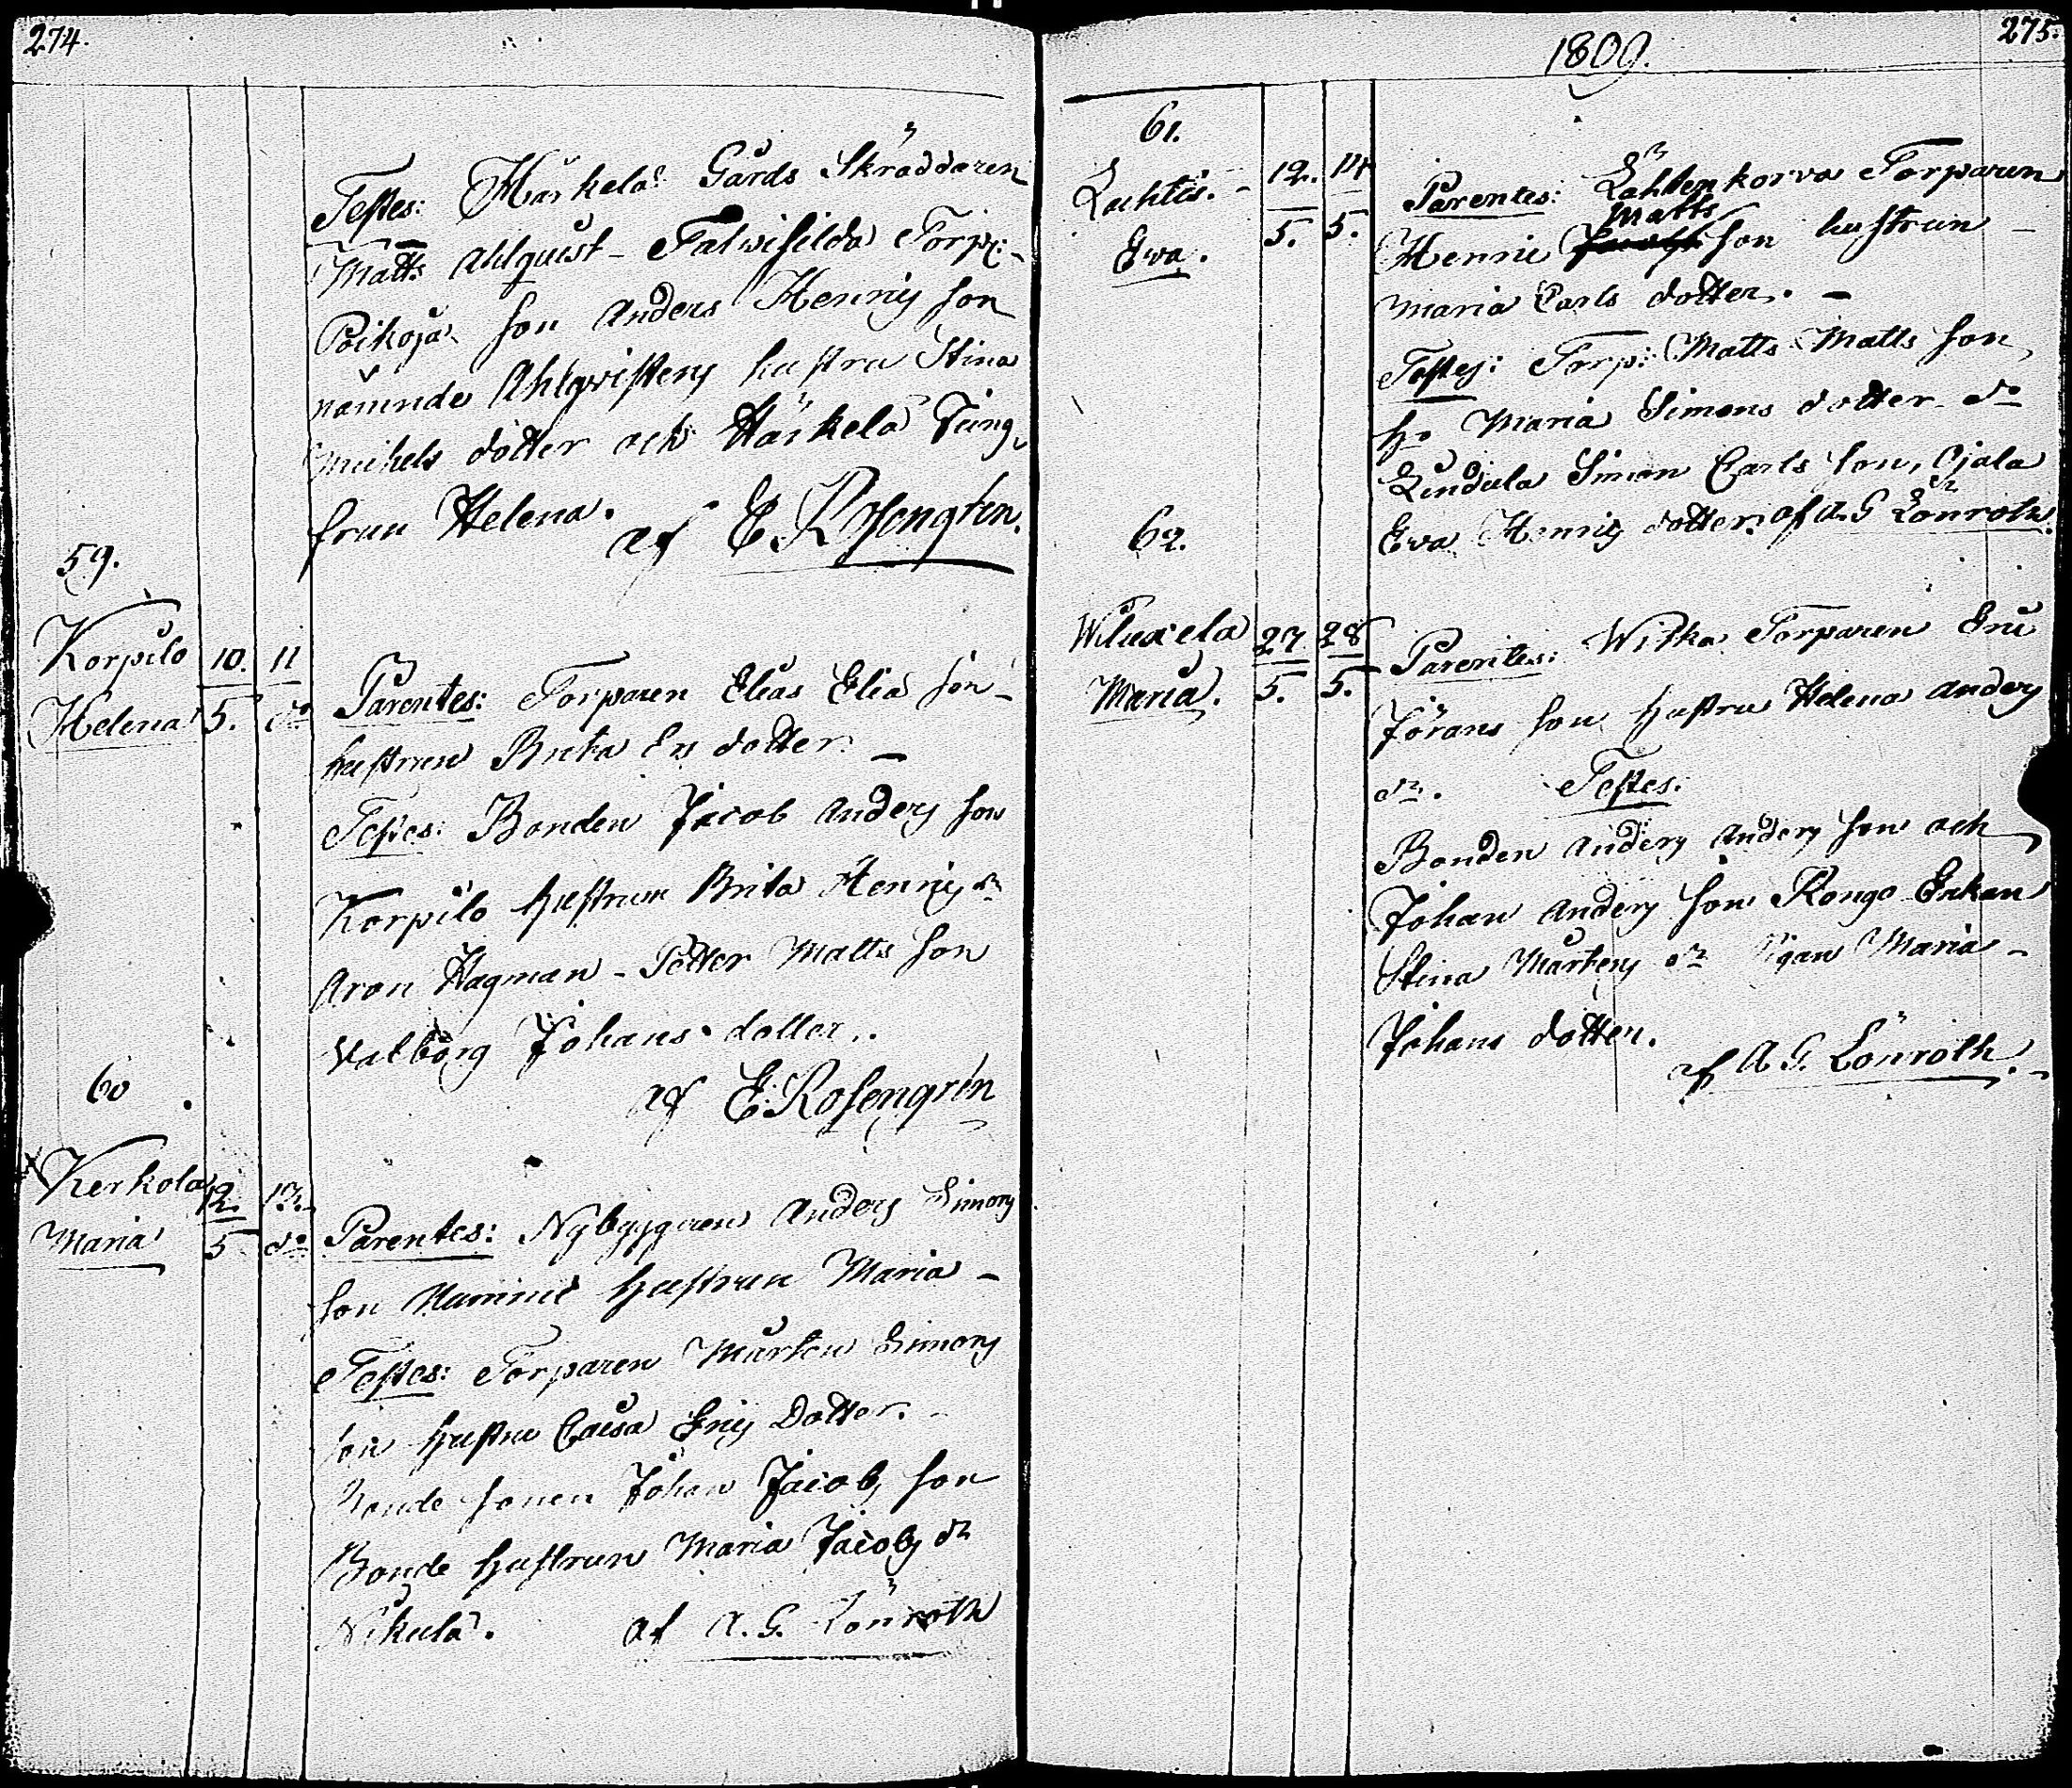 274.
Testes: Härkelä Gårds Skräddaren
Matts Ahlquist - Talwisilda Torp:
Poikoja son Anders Henri
son
nämnde Ahlqwistens hustru Stina
Michels dotter och Härkelä Jung
frun Helena.
af E Rosengrén.
59.
Korpilo 10. 11
Helena 5. do
Parentes: Torparen Elias Elia son
hustrun Brita Ers dotter. -
Testes: Bonden Jacob Anders son
Korpilo hustrun Brita Henrics dr
Aron Hagman - Petter Matts son
Valborg Johans dotter.
af E. Rosengrén
60
Kerkola 12. 13.
Maria 5 do
Parentes: Nybyggaren Anders Simons
son hustrun Maria -
Testes: Torparen Mårten Simons
son hustru Caisa Eris Dotter.
Bonde sonen Johan Jacobs son
Bonde hustrun Maria Jacobs dr
Nikula.
af A. G. Lönroth
1809.
275.
61.
Lachtis. 12. 14
Eva. 5. 5.
Parentes: Lahtenkorva Torparen
Matts
Henric son hustrun -
Maria Carls dotter. -
Testes: Torp: Matts Matts son,
ho Maria Simons dotter do
Simon Carls son, Ojala
Eva Henrics dotter. af A. G Lönroth.
62.
Wiluxela 27. 28
Maria. 5. 5.
Parentes: Witka Torparen Eric
Jörans son hustru Helena Anders
dr. Testes:
Bonden Anders Anders son och
Johan Anders son Rongo Enkan
Stina Mårtens dr Pigan Maria -
Johans dotter.
af A G. Lönroth.